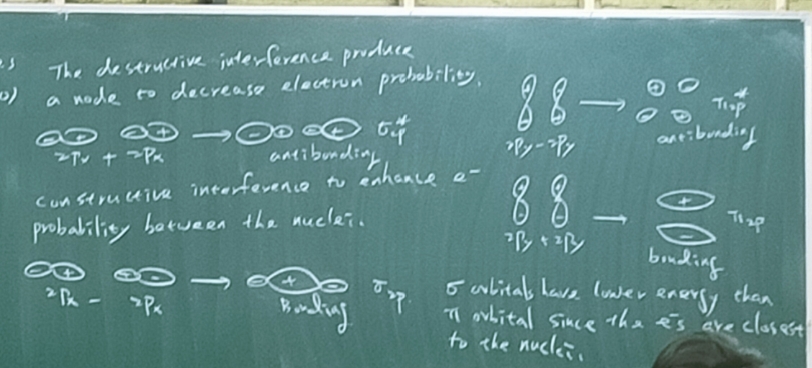 The destructive interference produce
a node to decrease electron probability.
2Px + 2Px
σ2p*
antibonding
constructive interference to enhance e-
probability between the nuclei.
2Px - 2Px
Bonding
σ2p
2Py - 2Py
π2p*
antibonding
2Py + 2Py
π2p
bonding
σ orbitals have lower energy than
π orbital since the e-s are closest
to the nuclei.